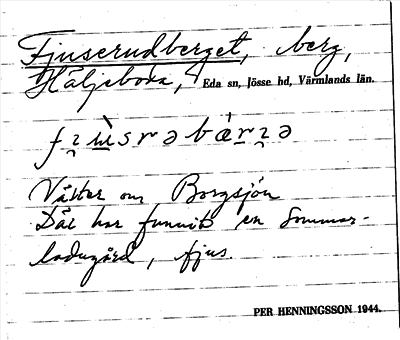 Fjuserudberget, berg,
Häljeboda, Eda sn, Jösse hd, Värmlands län.
Väster om Borgsjön
Där har funnits en sommar-
ladugård, fjus.
PER HENNINGSSON 1944.